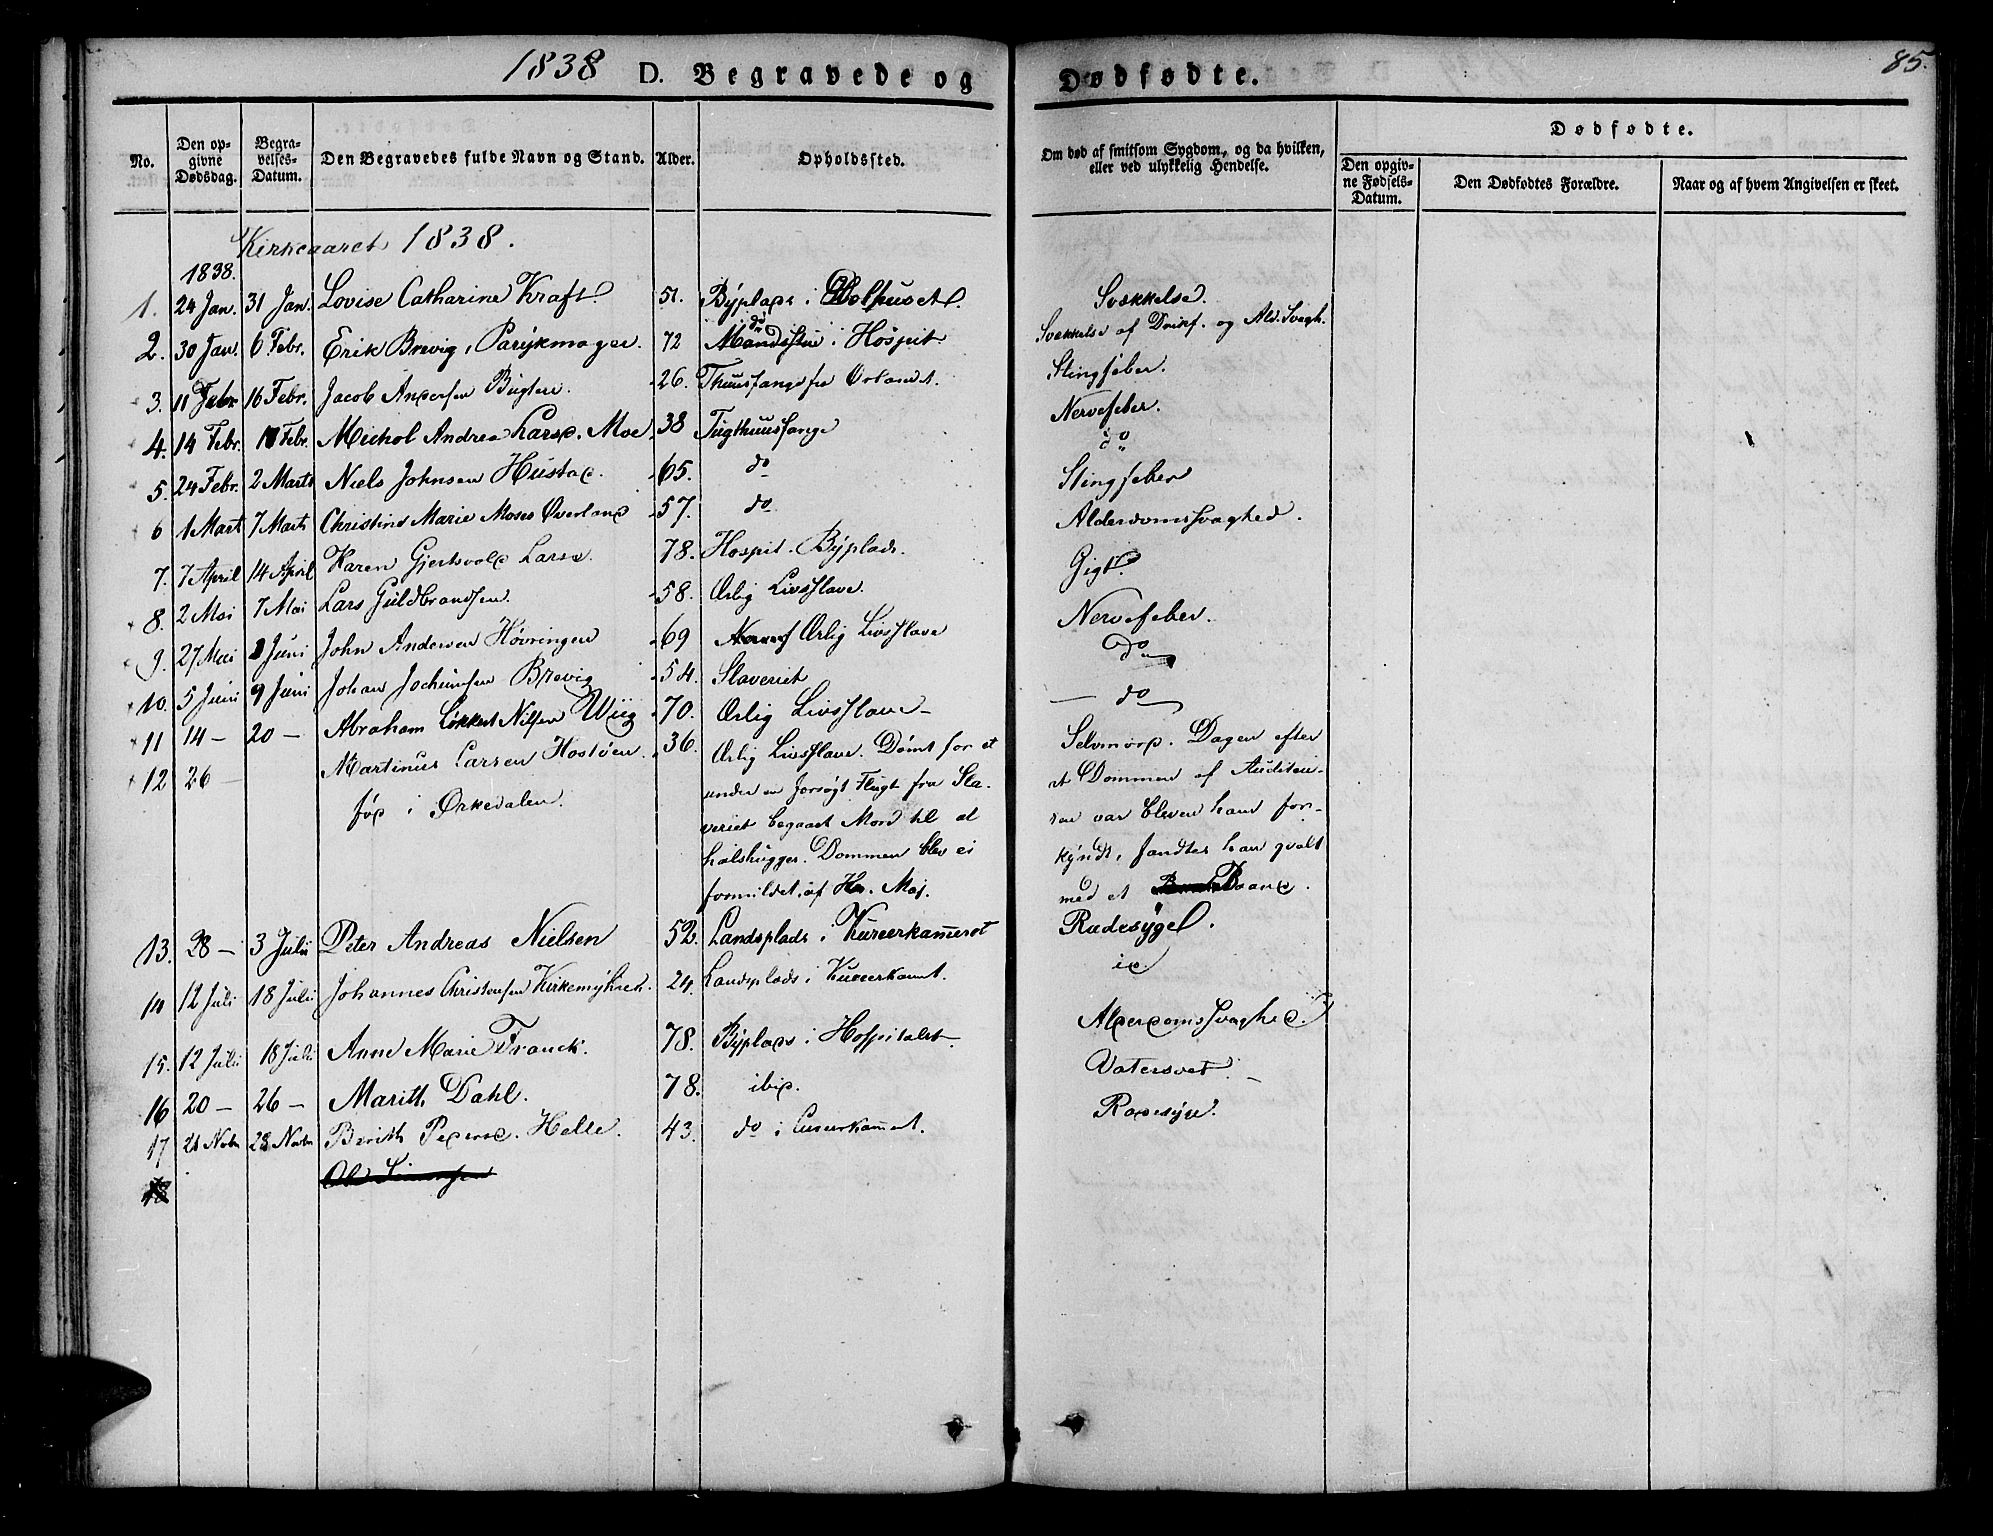 1838 D. Begravede og Dødfødte. 85.
No. Den opgivne Dødsdag. Begravelses-Datum. Den Begravedes fulde Navn og Stand. Alder. Opholdssted. Om død af smitsom Sygdom, og da hvilken, eller ved ulykkelig Hendelse. Dødfødte. Den opgivne Fødsels-Datum. Den Dødfødtes Forældre. Naar og af hvem Angivelsen er skeet.
Kirkeaaret 1838.
1838.
1. 24 Jan. 31 Jan. Lovise Catharine Kraft 51. Býplads i Dolhuset. Svækkelse.
2. 30 Jan. 6 Febr. Erik Brevig, Parýkmager. 72 do Mandsstue i Hospit Svækkelse af Drikf. og Ald. Svagh.
3. 11 Febr 16 Febr. Jacob Andersen Bugten. 26. Thuusfange fra Ørlandet. Stingfeber.
4. 14 Febr. 17 Febr. Michol Andrea Larsd. Moe 38 Tugthuusfange Nervefeber.
5. 24 Febr. 2 Marts Niels Johnsen Hustad. 65. do do
6 1 Mart 7 Marts Christine Marie Moses Øverland 57. do Stingfeber
7. 7 April 14 April Karen Gjertsvold Larsd. 78. Hospit. Býplads. Alderdomssvaghed.
8. 2 Mai 7 Mai Lars Guldbrandsen. 58. Ærlig Livsslave. Gigt.
9. 27 Mai 1 Juni John Andersen Høvringen 69 Ærlig Livsslave Nervefeber.
10. 5 Juni 9 Juni Johan Jochumsen Brevig 54. Slaveriet do
11 14 — 20 — Abraham Nilsen Wiig 70. Ærlig Livsslave — — do
12 26 — Martinus Larsen Hostøen. 36. Ærlig Livsslave. Dømt for et Selvmord. Dagen efter
fød i Ørkedalen. under en forsøgt Flugt fra Sla- at Dommen af Auditeu-
veriet begaaet Mord til at ren var bleven ham for-
halshugges. Dommen blev ei kýndt, fandtes han qvalt
formildet af Hs. Maj. med et Baand.
13. 28 — 3 Julii Peter Andreas Nielsen 52. Landsplads i Kureerkameret Radesýge.
14 12 Juli 18 Julii Johannes Christensen Kirkemýhred. 24. Landsplads i Kureerkamt. id.
15. 12 Juli 18 Juli Anne Marie Franck. 78. Býplads i Hospitalet Alderdomssvaghed.
16 20 — 26 — Marith Dahl. 78. ibid. Vatersot. —
17 21 Novbr 28 Novbr Berith Pedersd. Helle. 43. do i Cureerkamret. Radesýge.
18 Ole Simonsen